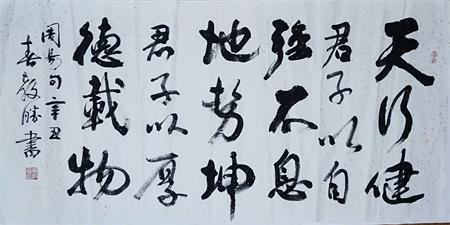 天行健
君子以自
強不息
地勢坤
君子以厚
德載物
周易句辛丑
春毅勝書